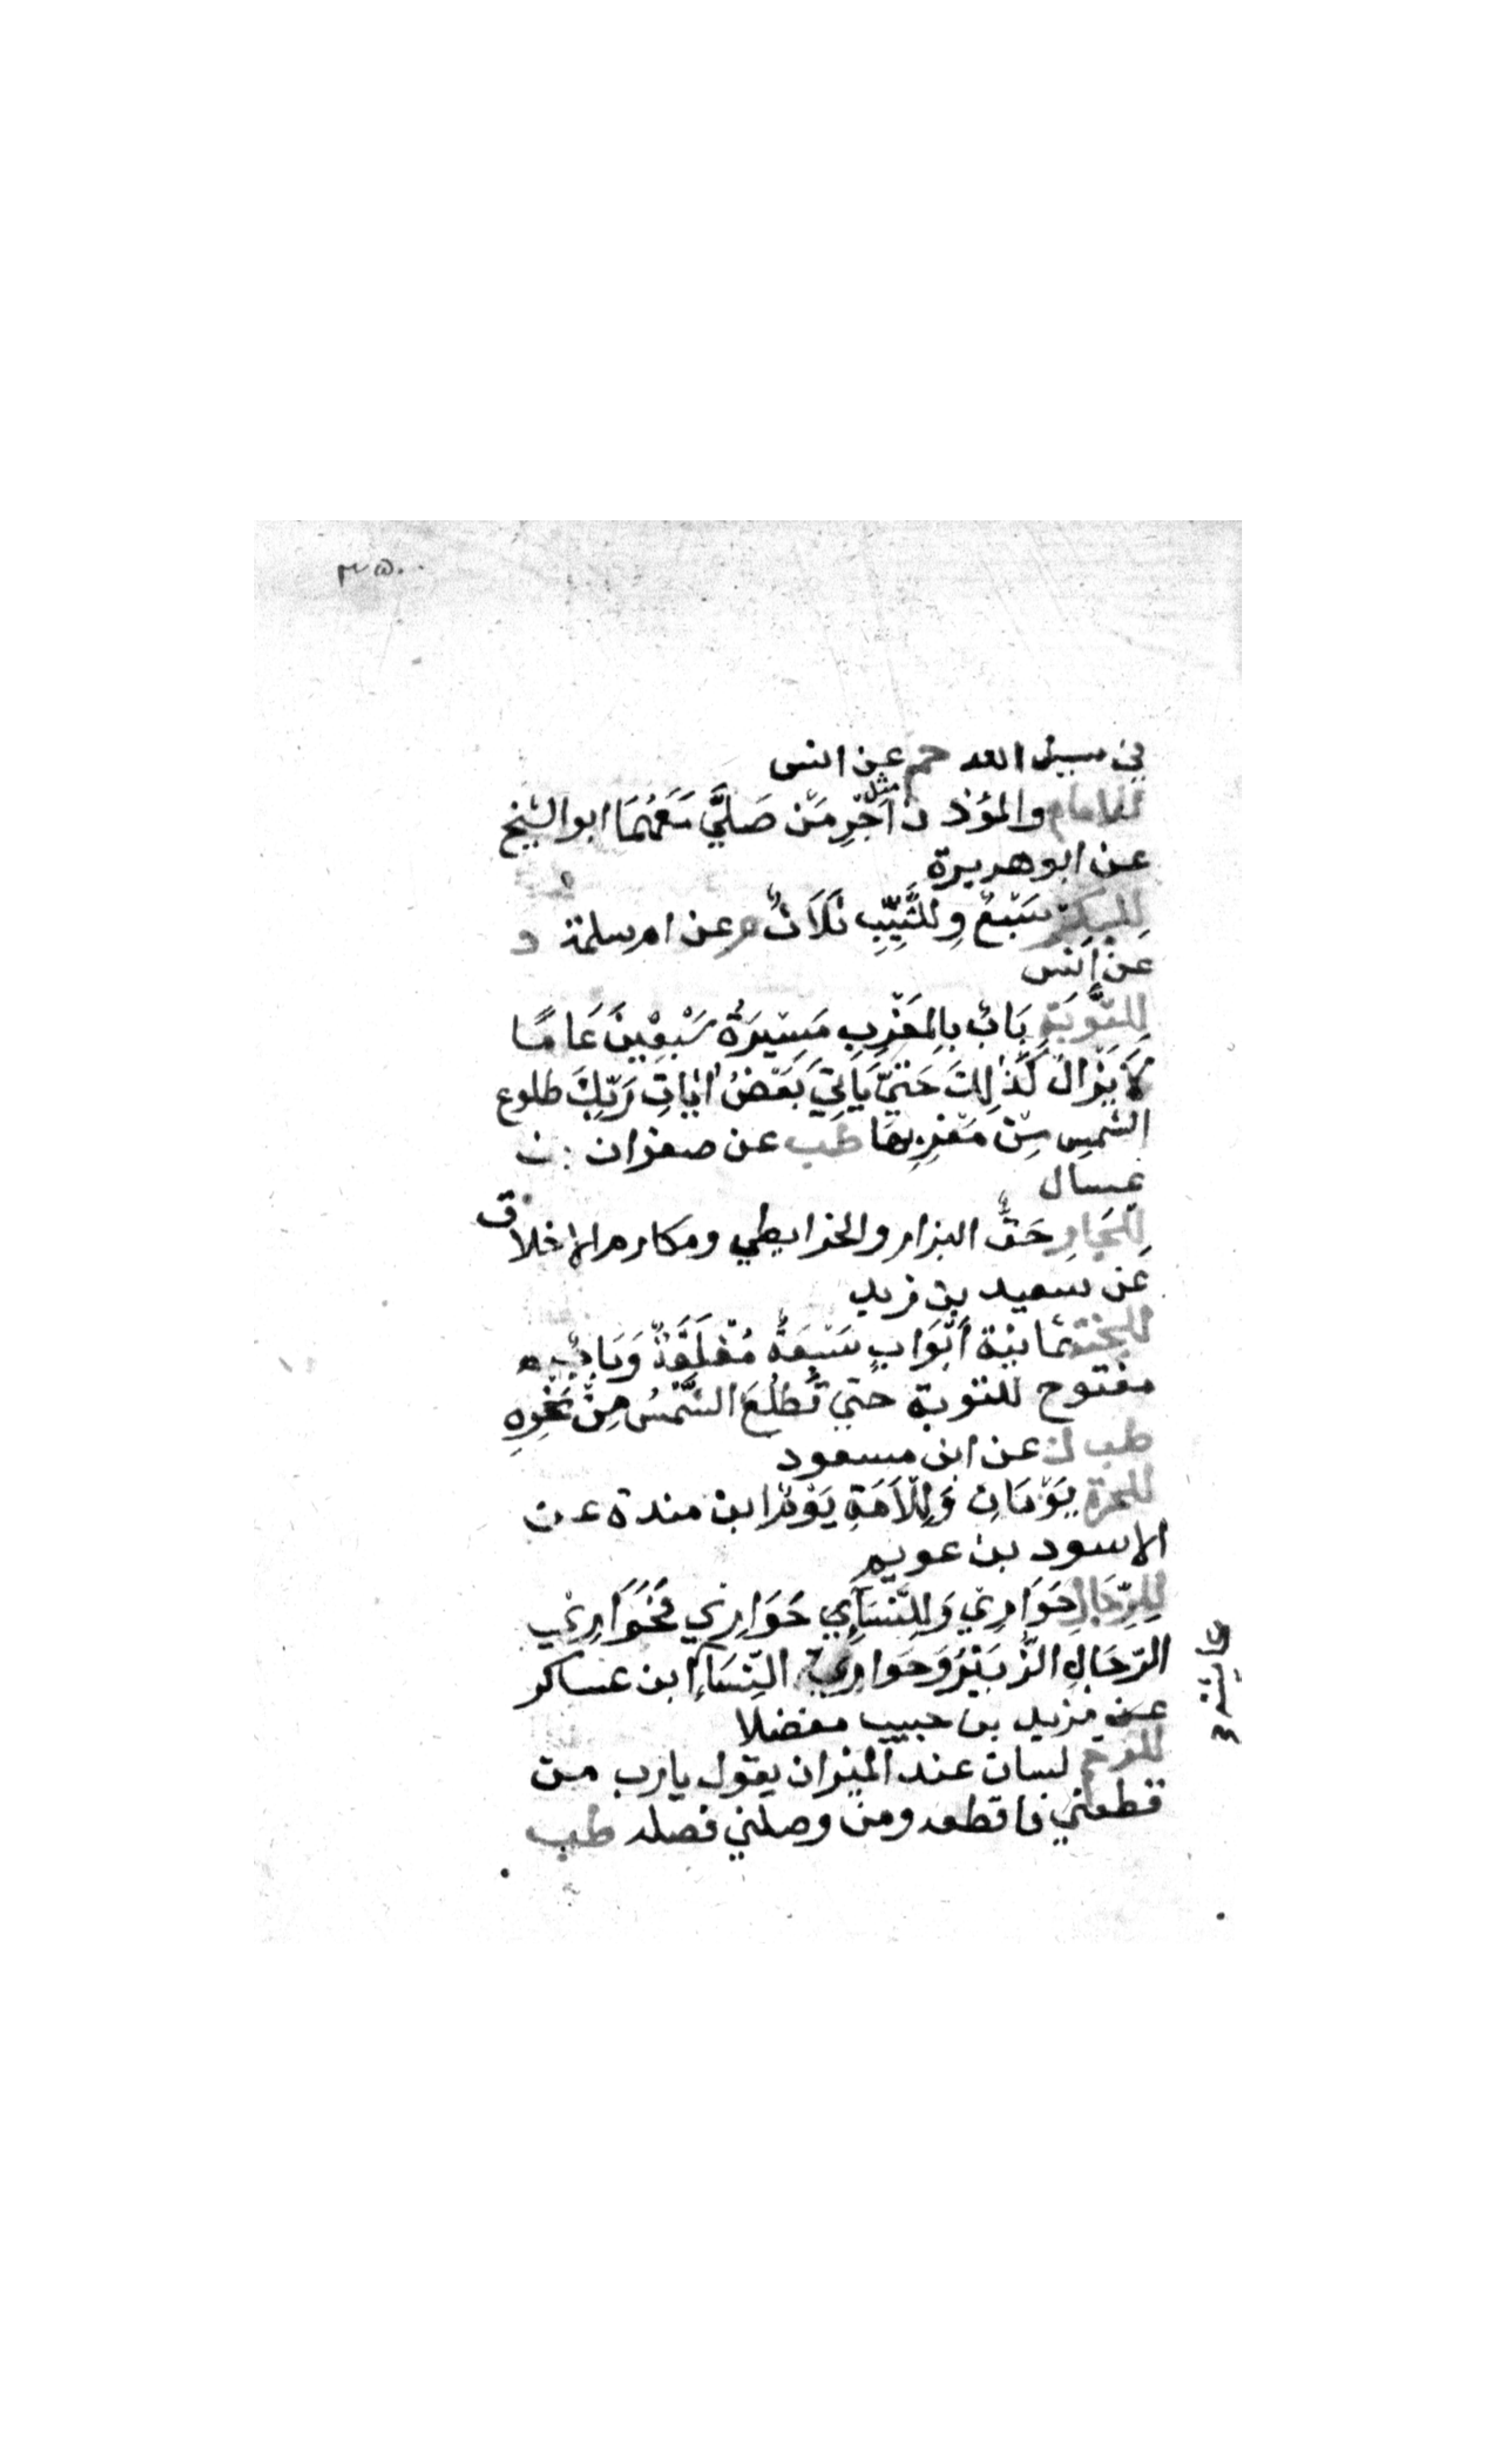 ٣٥٠٠
في سبيل الله حم عن انس
للامام والمؤذن مثل اَجْرِ مَنْ صَلَّي مَعَهُمَا ابو الشيخ
عن ابو هريرة
لِلْبِكْرِ سَبْعٌ وِللثَّيِّبِ ثَلَاثٌ م عن ام سلمة د
عَنْ اَنَس
لِلتَّوْبَةِ بَابٌ بِالمَغْرِبِ مَسِيرَةُ سَبْعِينَ عَامًا
لَا يَزَالُ كَذٰلِكَ حَتيَّ يَأتِيَ بَعْضُ اٰيَاتِ رَبِّكَ طلوع
الشمسِ مِنْ مَغْرِبِهَا طب عن صفوان بن
عسال
لِلْجَارِ حَقٌّ البزار والخرايطي ومكارم الاخلاق
عَن سعيد بن زيد
للجنة ثمانية اَبْوَابٍ سَبْعَةٌ مُغْلَقَةٌ وَبَابٌ
مفتوح للتوبة حتي تَطْلُعَ الشَّمْسُ مِنْ نَحْوِهِ
طب ك عن ابن مسعود
للحرة يَوْمَانِ وَلِلْاَمَةِ يَوْمٌ ابن مندة عن
الاسود بن عويم
لِلرِّجَالِ حَوَارِي وَلِلنِّسَآءِ حَوَارِي فَحَوَارِي
الرِّجَالِ الزُّبَيْرُ وَحَوارِيَّة النِّسَآءِ ابن عساكر
عائشة
عن يزيد بن حبيب معضلا
للرحم لسان عند الميزان يقول يا رب من
قطعني فاقطعه ومن وصلني فصله طب